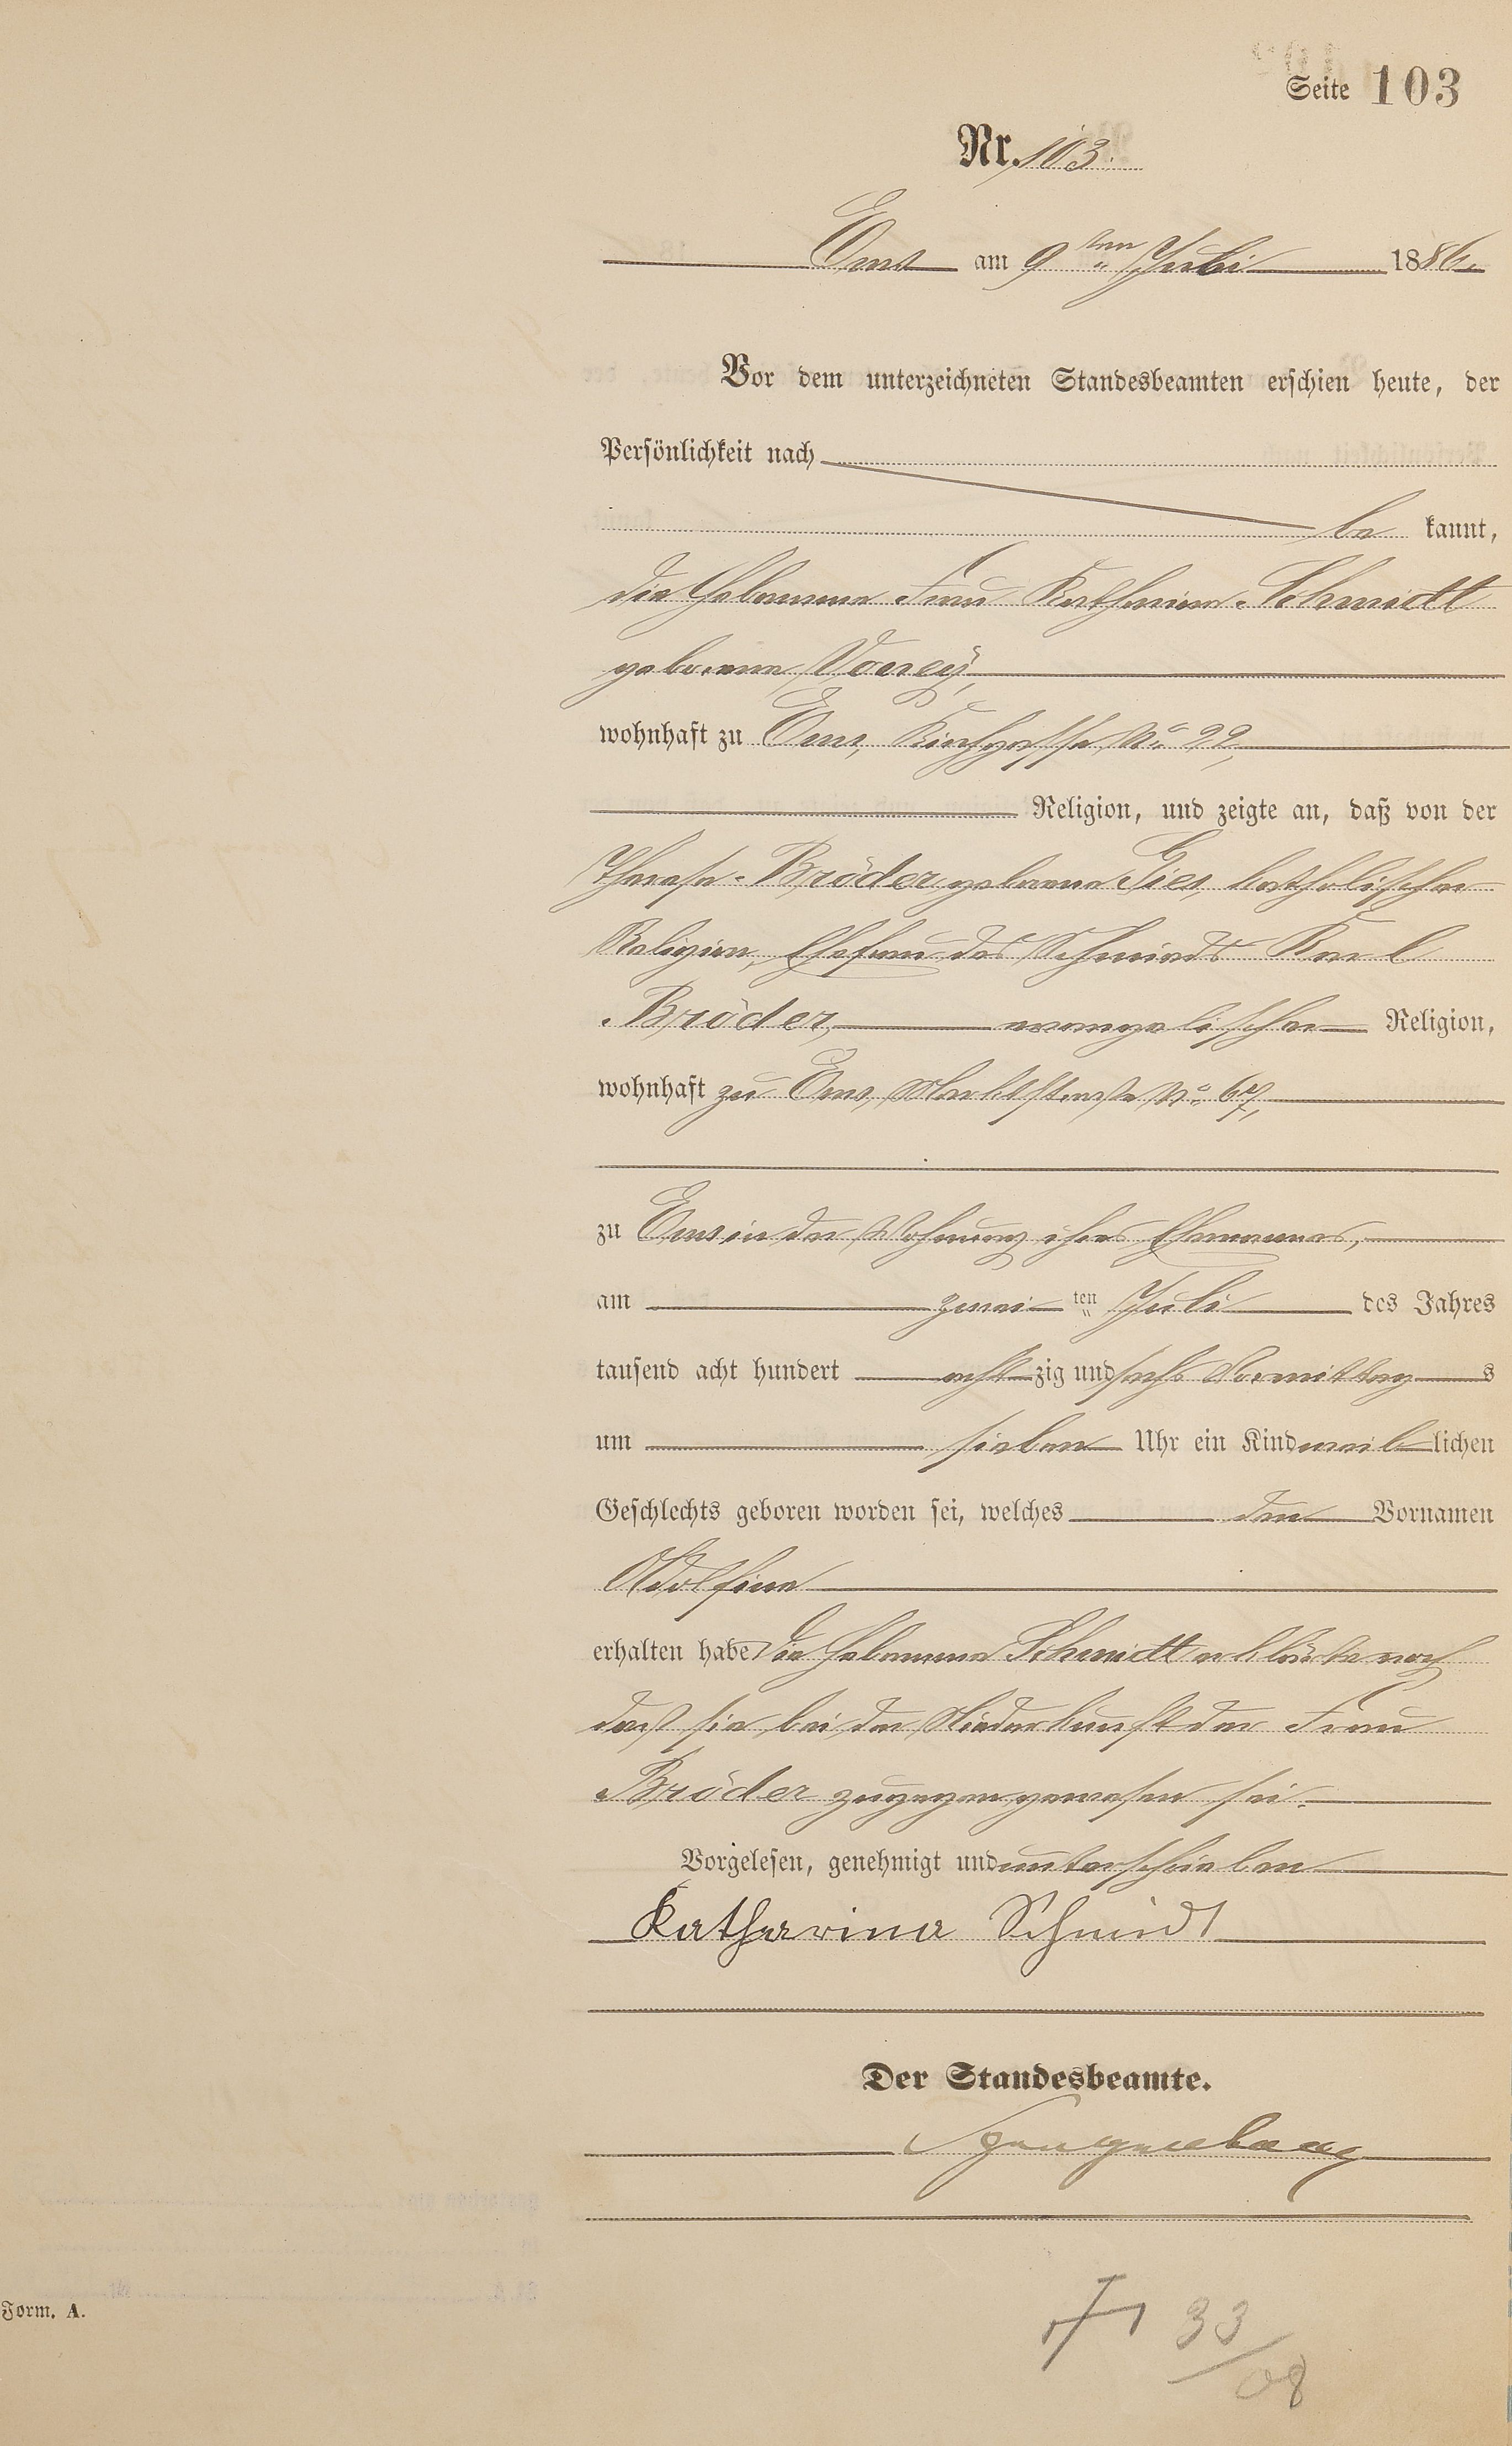 Seite 103
Nr. 103.
Ems am 9ten Juli 1886.
Vor dem unterzeichneten Standesbeamten erschien heute, der
Persönlichkeit nach
be kannt,
die Hebamme Frau Katharina Schmidt
geborene Vorey,
wohnhaft zu Ems, Kirchgasse No 22,
Religion, und zeigte an, daß von der
Therese Bröder geborene Gies, katholischer
Religion, Ehefrau des Schmieds Karl
Bröder, evangelischer Religion,
wohnhaft zu Ems, Marktstraße No 67,
zu Ems in der Wohnung ihres Ehemannes,
am zwei ten Juli des Jahres
tausend acht hundert acht zig und sechs Vormittag s
um sieben Uhr ein Kind weib lichen
Geschlechts geboren worden sei, welches den Vornamen
Adolfine
erhalten habe Die Hebamme Schmidt erklärte noch
daß sie bei der Niederkunft der Frau
Bröder zugegen gewesen sei.
Vorgelesen, genehmigt und unterschrieben
Katharina Schmidt
Der Standesbeamte.
Spangenberg
33
/08
Form. A.